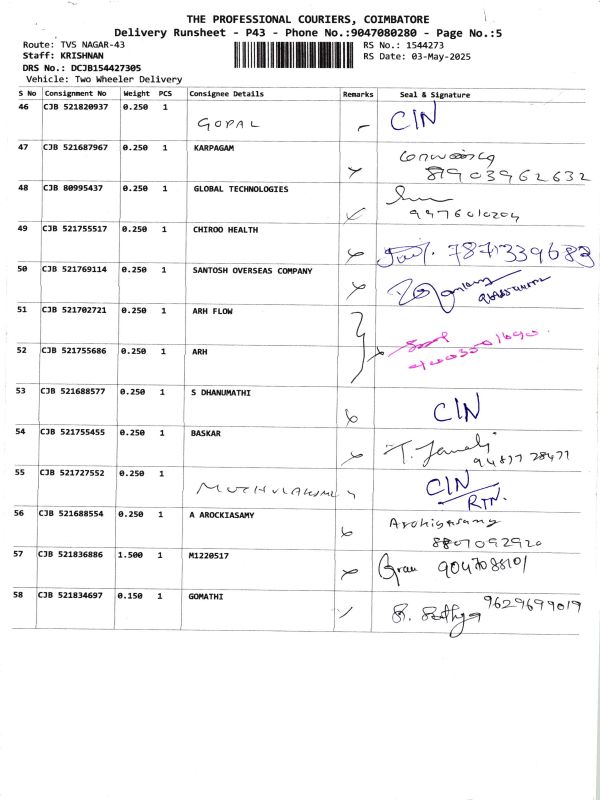 THE PROFESSIONAL COURIERS, COIMBATORE
Delivery Runsheet - P43 - Phone No.:9047080280 - Page No.:5
Route: TVS NAGAR-43 RS No.: 1544273
Staff: KRISHNAN RS Date: 03-May-2025
DRS No.: DCJB154427305
Vehicle: Two Wheeler Delivery
S No Consignment No Weight PCS Consignee Details Remarks Seal & Signature
46 CJB 521820937 0.250 1 GOPAL CIN
47 CJB 521687967 0.250 1 KARPAGAM
8903962632
48 CJB 80995437 0.250 1 GLOBAL TECHNOLOGIES
9976010204
49 CJB 521755517 0.250 1 CHIROO HEALTH 7871339683
50 CJB 521769114 0.250 1 SANTOSH OVERSEAS COMPANY
51 CJB 521702721 0.250 1 ARH FLOW
52 CJB 521755686 0.250 1 ARH
53 CJB 521688577 0.250 1 S DHANUMATHI CIN
54 CJB 521755455 0.250 1 BASKAR
55 CJB 521727552 0.250 1 CIN
RTN.
56 CJB 521688554 0.250 1 A AROCKIASAMY Arokiyasamy
8807092920
57 CJB 521836886 1.500 1 M1220517 9047088101
58 CJB 521834697 0.150 1 GOMATHI 9629699019